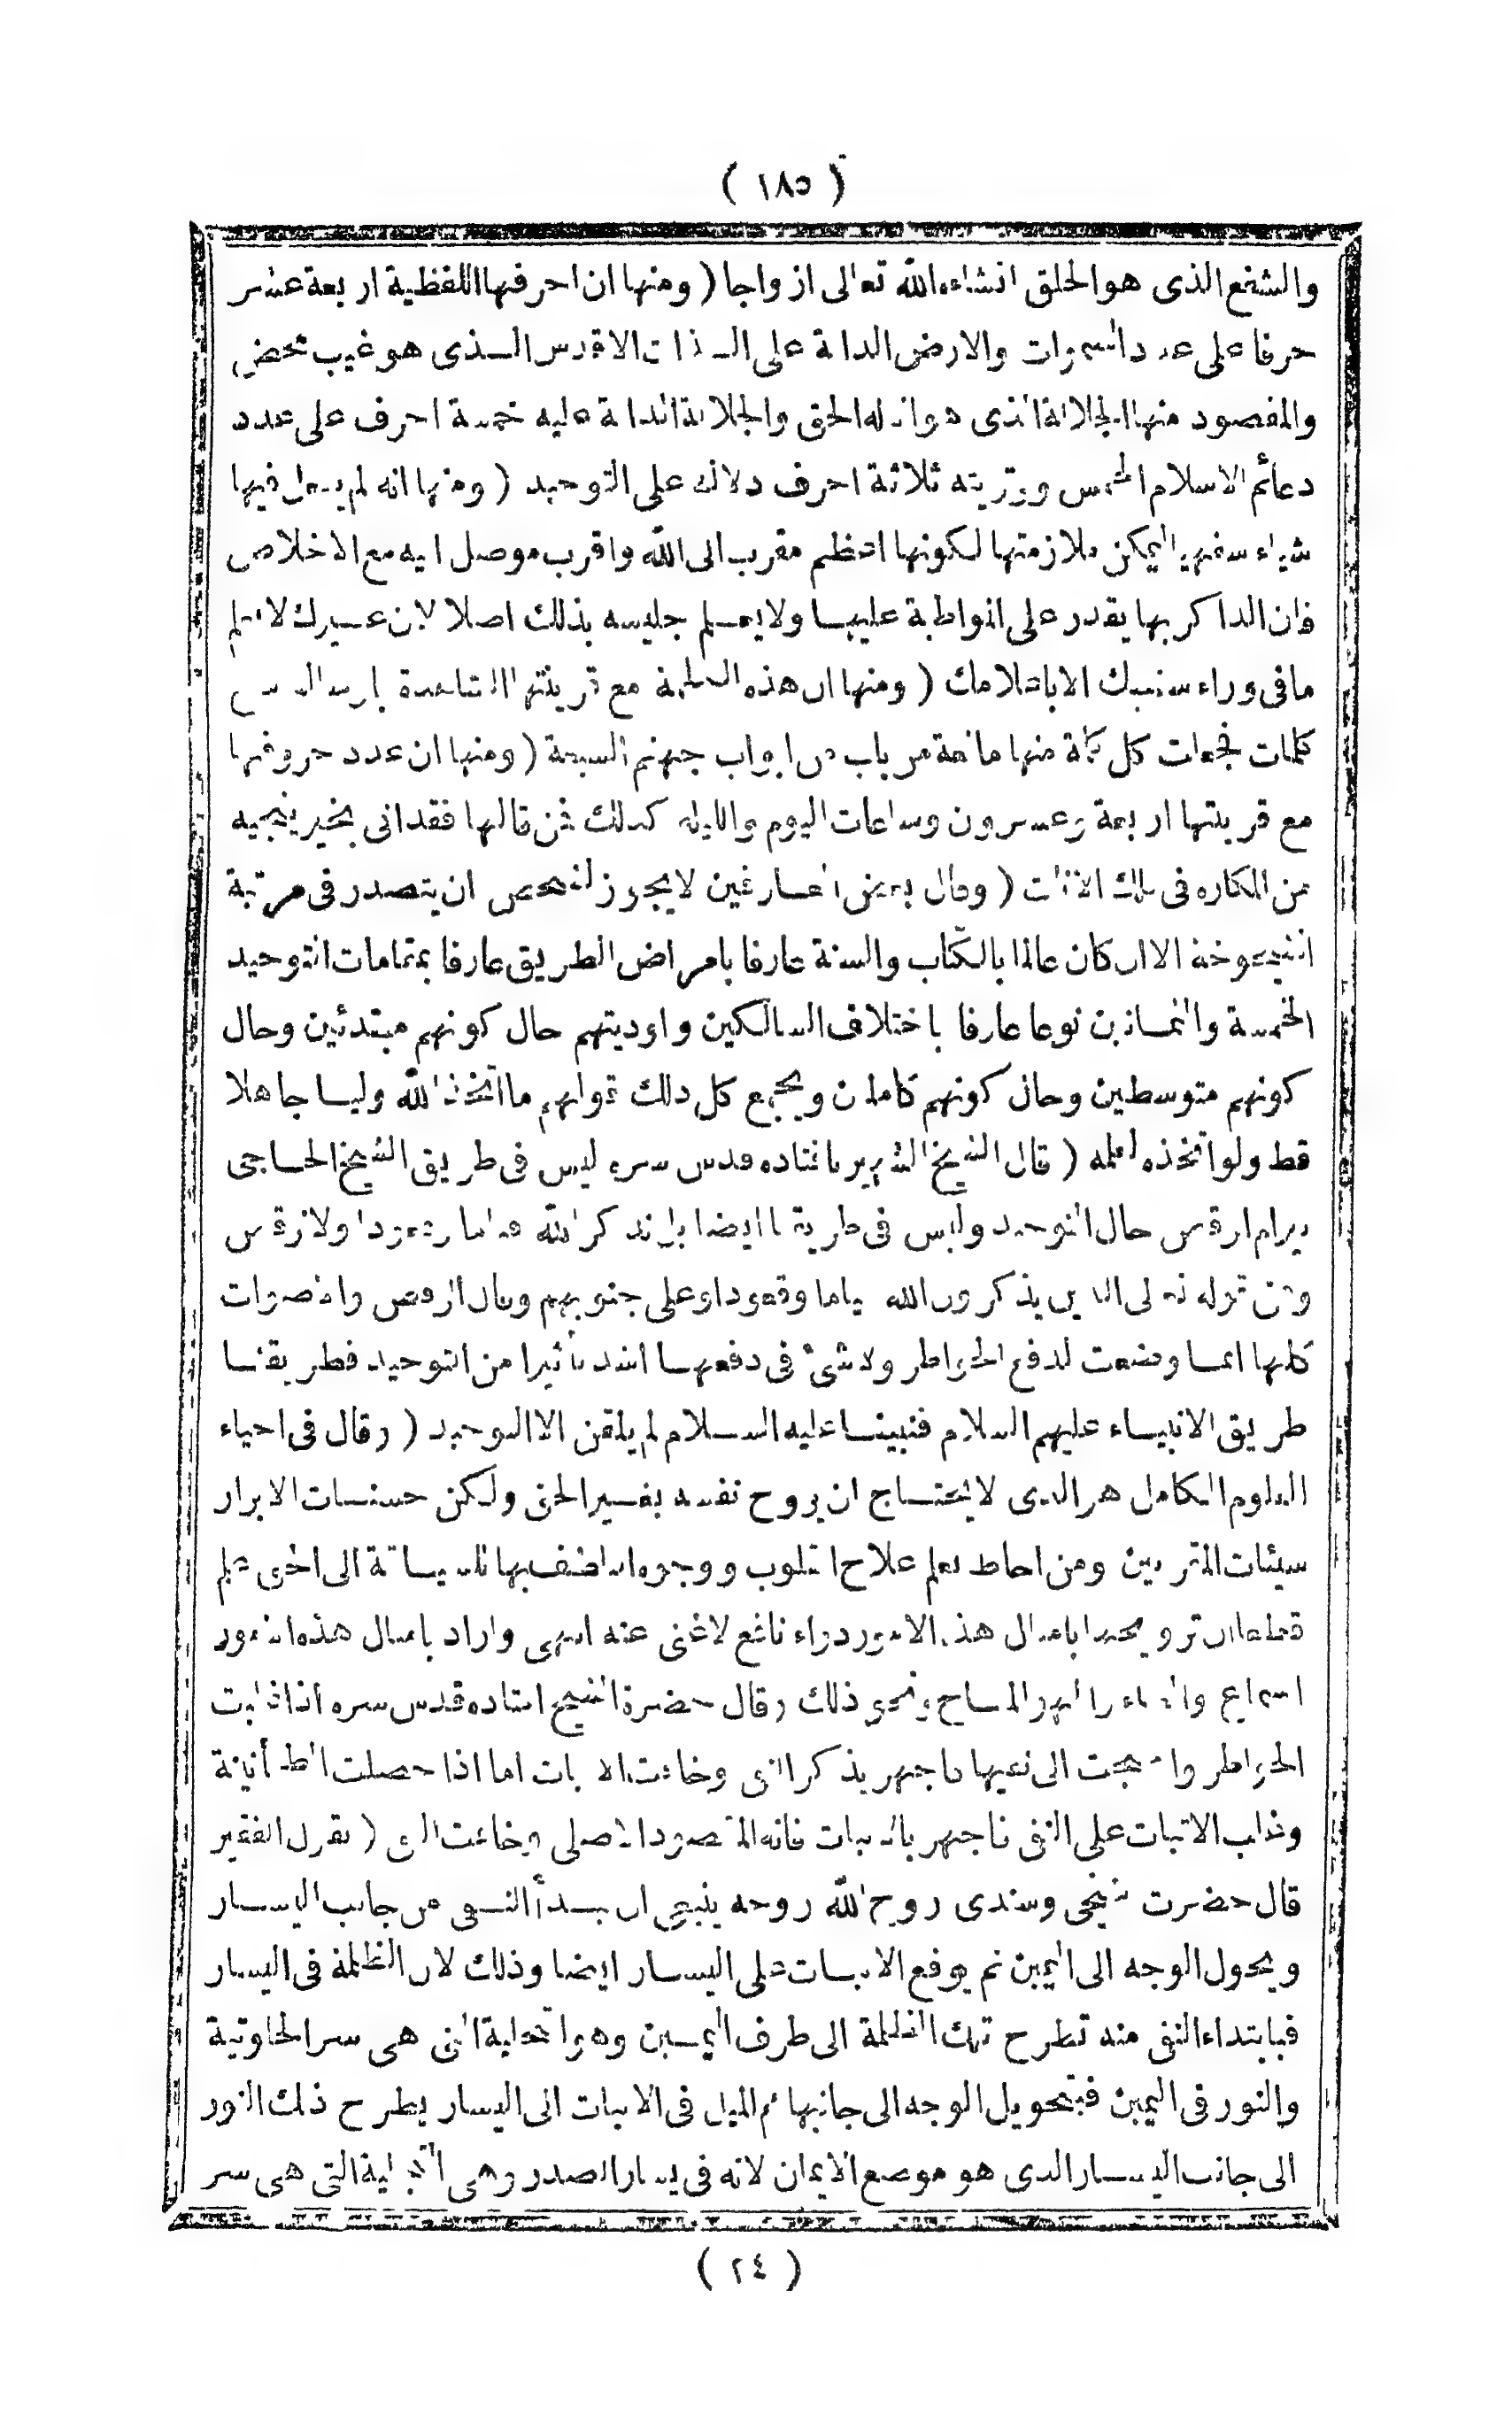 ( ١٨٥ )
والشفع الذى هو الخلق انشاءه الله تعالى ازواجا ( ومنها ان احرفها اللفظية اربعة عشر
حرفا على عدد السموات والارض الدالة على الذات الاقدس الذى هو غيب محض
والمقصود منها الجلالة الذى هو اله الحق والجلالة الدالة عليه خمسة احرف على عدد
دعائم الاسلام الخمس ووتريته ثلاثة احرف دلالة على التوحيد ( ومنها انه لم يجعل فيها
شيأ شفهيا ليمكن ملازمتها لكونها اعظم مقرب الى الله واقرب موصل اليه مع الاخلاص
فان الذاكر بها يقدر على المواظبة عليها ولا يعلم جليسه بذلك اصلا لان غيرك لا يعلم
ما فى وراء شفتيك الا باعلامك ( ومنها ان هذه الكلمة مع قرينتها الشاهدة بالرسالة سبع
كلمات فجعلت كل كلمة منها مانعة من باب من ابواب جهنم السبعة ( ومنها ان عدد حروفها
مع قرينتها اربعة وعشرون وساعات اليوم والليلة كذلك فمن قالها فقد اتى بخير ينجيه
من المكاره فى تلك الآنات ( وقال بعض العارفين لا يجوز لشخص ان يتصدر فى مرتبة
الشيخوخة الا ان كان عالما بالكتاب والسنة عارفا بامراض الطريق عارفا بمقامات التوحيد
الخمسة والثمانين نوعا عارفا باختلاف السالكين واوديتهم حال كونهم مبتدئين وحال
كونهم متوسطين وحال كونهم كاملين ويجمع كل ذلك قولهم ما اتخذ الله وليا جاهلا
قط ولو اتخذه لعلمه ( قال الشيخ الشهير بافتاده قدس سره ليس فى طريق الشيخ الحاجى
بيرام الرقص حال التوحيد وليس فى طريقنا ايضا بل نذكر الله قياما وقعودا ولا نرقص
وفق قوله تعالى الذين يذكرون الله قياما وقعودا وعلى جنوبهم وقال الرقص والاصوات
كلها انما وضعت لدفع الخواطر ولا شئ فى دفعها اشد تأثيرا من التوحيد فطريقنا
طريق الانبياء عليهم السلام فنبينا عليه السلام لم يلقن الا التوحيد ( وقال فى احياء
العلوم الكامل هو الذى لا يحتاج ان يروح نفسه بغير الحق ولكن حسنات الابرار
سيئات المقربين ومن احاط بعلم علاج القلوب ووجوه التلطف بها للسياقة الى الحق علم
قطعا ان ترويحها بامثال هذه الامور دواء نافع لا غنى عنه انتهى واراد بامثال هذه الامور
السماع والغناء واللهو المباح ونحو ذلك وقال حضرة الشيخ افتاده قدس سره اذا غلبت
الخواطر واحتجت الى نفيها فاجهر بذكر النفى وخافت الاثبات اما اذا حصلت الطمأنينة
وغلب الاثبات على النفى فاجهر بالاثبات فانه المقصود الاصلى وخافت النفى ( يقول الفقير
قال حضرت شيخى وسندى روح الله روحه ينبغى ان يبدأ النفى من جانب اليسار
ويحول الوجه الى اليمين ثم يوقع الاثبات على اليسار ايضا وذلك لان الظلمة فى اليسار
فبابتداء النفى منه تطرح تلك الظلمة الى طرف اليمين وهو التخلية التى هى سر الخلوتية
والنور فى اليمين فبتحويل الوجه الى جانبها ثم الميل فى الاثبات الى اليسار يطرح ذلك النور
الى جانب اليسار الذى هو موضع الايمان لانه فى يسار الصدر وهى التجلية التى هى سر
( ٢٤ )